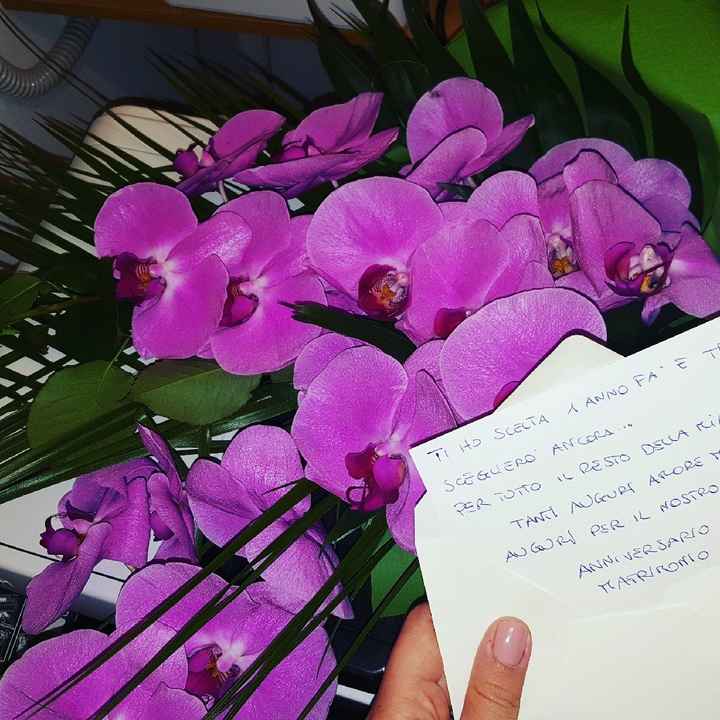 TI HO SCELTA 1 ANNO FA' E T
SCEGLIERO' ANCORA...
PER TUTTO IL RESTO DELLA MIA
TANTI AUGURI AMORE M
AUGURI PER IL NOSTRO
ANNIVERSARIO
MATRIMONIO